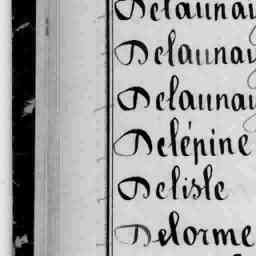 Delaunay
Delaunay
Delaunay
Delépine
Delisle
Delorme